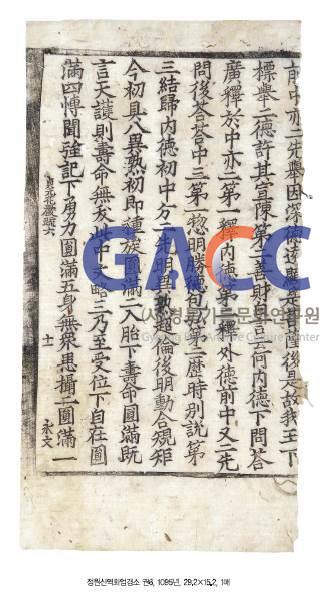 前中亦二先擧因深德述歷是
後是故我王下
標擧二德許其宣陳第二善財
言云何內德下問答
廣釋於中亦二第一釋內德第
釋外德前中又二先
問後答答中三第一惣明勝德包
第二歷時別說第
三結歸內德初中方
先明
超倫後明動合規矩
今初具八異熟初卽種族圓滿二入胎下壽命圓滿旣
言天護則壽命無夭世中
略二乃至受位下自在圓
滿四愽聞強記下勇力圓滿五身無衆患攝二圓滿一
貞元花嚴䟽六
十
永文
GACC
(사)경북기록문화연구원
정원신역화엄경소 권6, 1095년, 29.2×15.2, 1매